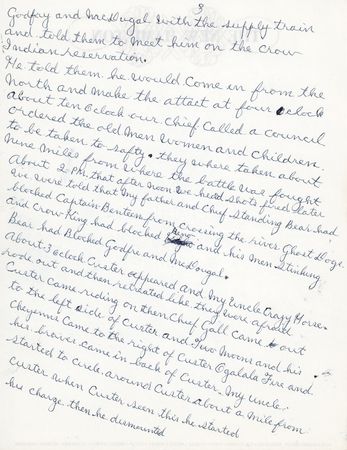 3
Godfay and McDugal with the supply train
and told them to meet him on the Crow
Indian reservation.
He told them he would come in from the
North and make the attact at four oclock
About ten Oclock our Chief called a council
ordered the old Men Women and Children
to be taken to safty. they where taken about
nine Miles from where the battle was fought
About 2 P.M. that after noon we heard shots fired later
we were told that My father and Chief Standing Bear had
blocked Captain Benteen from crossing the river Ghost Dogs
and Crow King had blocked Reno and his Men Stinking
Bear had Blocked Godfre and McDougal.
About 3 oclock Custer appeared and My Uncle Crazy Horse
rode out and then retreated like they were afraid.
Custer came riding on then Chief Gall Came out
to the left side of Custer and Two Moons and his
Cheyenne Came to the right of Custer Ogalala Fire and
his braves came in back of Custer. My uncle
started to circle around Custer about a Mile from
Custer when Custer seen this he started
his charge. then he dismounted